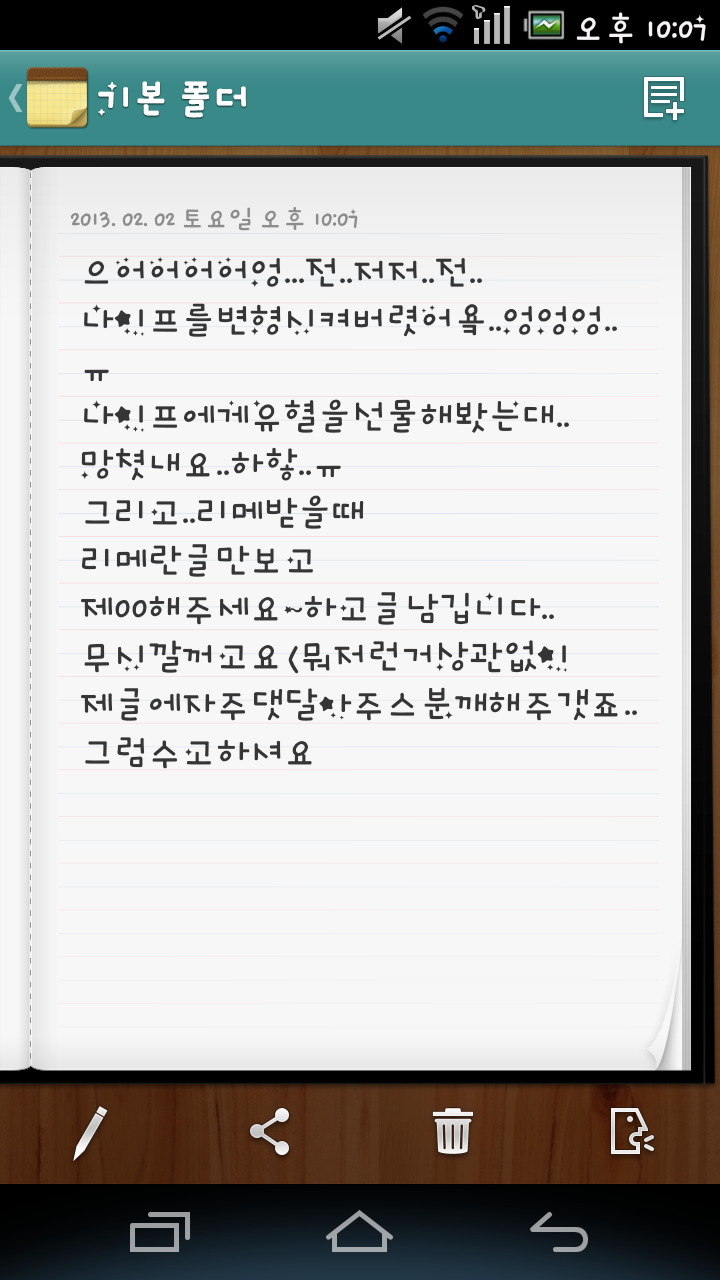 오후 10:07
기본 폴더
2013. 02. 02 토요일 오후 10:07
으어어어어엉...전..저저..전..
나이프를변형시켜버렷어욬..엉엉엉..
ㅠ
나이프에게유혈을선물해봤는대..
망쳣내요..하핳..ㅠ
그리고..리메받을때
리메란글만보고
제00해주세요~하고글남깁니다..
무시깔꺼고요(뭐저런거상관없이
제글에자주댓달아주스분깨해주갯죠..
그럼수고하셔요